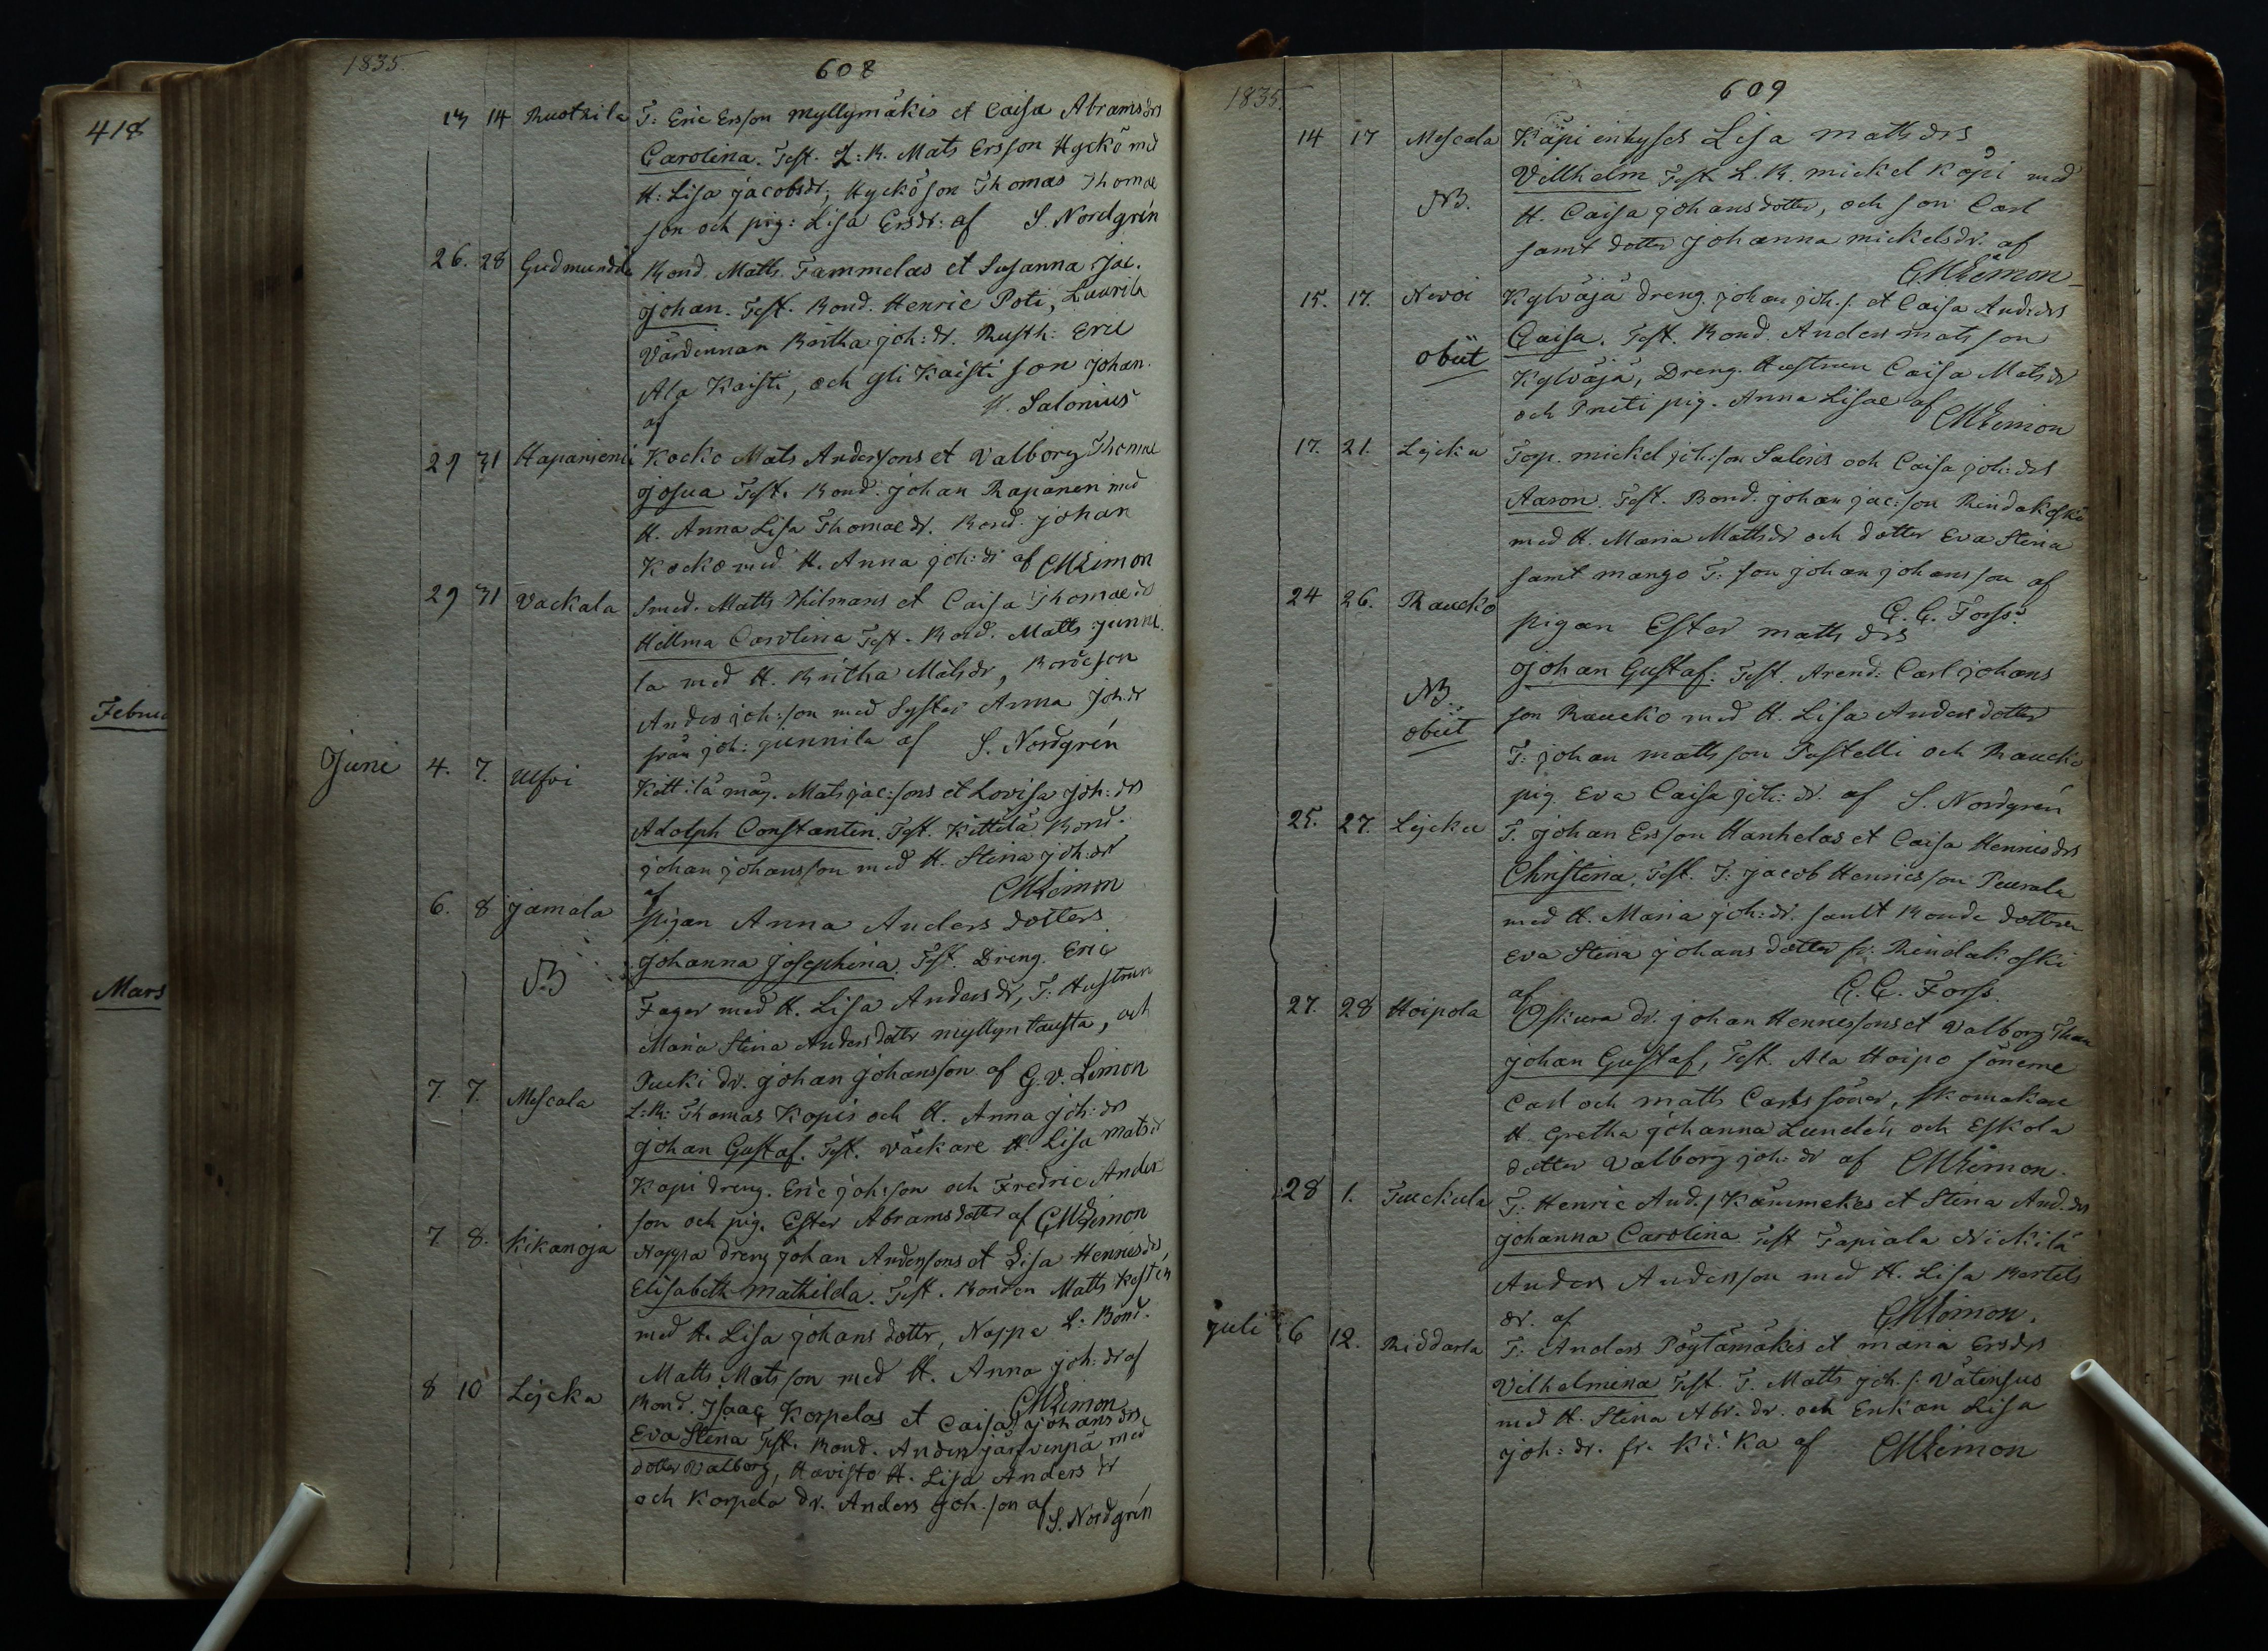 418
Februa
Mars
1835.
608
13 14 Rusthila T: Eric Ersson Myllymäkis et Caisa Abramsdrs
Carolina. Test. L:B. Mats Ersson Hyckö med
H: Lisa Jacobsdr, Hyckö son Thomas Thomae
son och pig: Lisa Ersdr: af S. Nordgrén
26. 28 Gudmundila Bond. Matts Tammelas et Susanna Jac.
Johan. Test. Bond. Henric Poti, Laurila
Värdinnan Britha Joh: dr. Rusth: Eric
Ala Kaisti, och Yli Kaisti son Johan.
af H. Salonius
29 31 Hapaniemi Kocko Mats Anderssons et Valborg Thomae
Josua Test. Bond. Johan Rapanen med
H. Anna Lisa Thomae dr. Bond. Johan
Kocko med H. Anna Joh: dr af CMLimon
29 31 Vackala Smed. Matts Hilmans et Caisa Thomae ds
Hellma Carolina Test. Bond. Matts Junni
la med H. Britha Matsdr, Bondeson
Anders Joh:son med Syster Anna Joh:dr
från Joh: Junnila af S. Nordgrén
Juni 4. 7. Ulfvi Kittilä måg. Mats Jac:sons et Lovisa Joh: drs
Adolph Constantin. Test. Kittilä Bond.
Johan Johansson med H. Stina Joh:dr
af CMLimon
6. 8 Jamala pigan Anna Anders dotters
NB
Johanna Josephina. Test. Dreng. Eric
Fager med H. Lisa Andersdr, T: Hustrun
Maria Stina Anders dotter Myllyntausta, och
Pucki dr. Johan Johansson af G. V. Limon
7. 7. Mescala L:B: Thomas Kopis och H. Anna Joh: drs
Johan Gustaf. Test. väckare H. Lisa Matsdr
Kapi dreng. Eric Johsson och Fredric Anders
son och pig. Ester Abramsdotter af CMLimon
7. 8. Kikanoja Nappa dreng Johan Anderssons et Lisa Henricsdrs,
Elisabeth Mathilda. Test. Bonden Matts Kestin
med H. Lisa Johans dotter, Nappa L: Bond.
Matts Matsson med H. Anna Joh: dr af
CMLimon
8 10 Lejcka Bond. Isaac Korpelas et Caisa Johans drs
Eva Stina Test. Bond. Anders Järfvenpä med
dotter Valborg, Havisto H. Lisa Anders dr
och Korpela dr. Anders Joh.son af S. Nordgrén
1835.
609
14 17 Mescala Käpi inhyses Lisa Matts drs
NB.
Villhelm Test. L. B. Mickel Käpi med
H. Caisa Johansdotter, och son Carl
samt dotter Johanna Mickelsdr. af
CMLimon
15. 17. Nevoi Kylväjä dreng. Johan Joh. s. et Caisa And:drs
obiit
Caisa. Test. Bond. Anders Matsson
Kylväjä, Dreng. Hustrun Caisa Matsdr
och Preti pig. Anna Lisa af CMLimon
17. 21. Lejcka Torp. Mickel Joh:son Salenis och Caisa Joh:drs
Aaron. Test. Bond. Johan Jac:son Rindakoski
med H. Maria Mattsdr och dotter Eva Stina
samt Mango T: son Johan Johansson af
G. G. Forss:
24 26. Raucko pigan Ester Matts drs
NB.
obiit
Johan Gustaf. Test. Arend. Carl Johans
son Raucko med H. Lisa Anders dotter
T: Johan Mattsson Pastelli och Raucko
pig. Eva Caisa Joh: dr. af S. Nordgrén
25. 27. Lejcka T. Johan Ersson Hanhelas et Caisa Henricsdrs
Christina. Test. T: Jacob Henricsson Peurala
med H. Maria Joh: dr. samt Bonde dottren
Eva Stina Johans dotter fr. Rindakoski
af G. G. Forss.
27. 28 Hoipola Oskura dr. Johan Henricssons et Valborg Thom
Johan Gustaf, Test. Ala Hoipo sönerne
Carl och Matts Carls söner, skomakare
H. Gretha Johanna Lundén och Eskola
dotter Valborg Joh: dr af CMLimon.
28 1. Tuckula T: Henric And. s Kämmekes et Stina And. drs
Johanna Carolina. Test Tapiala Nickilä
Anders Andersson med H. Lisa Bertels
dr. af CMLimon.
Juli 6 12. Riddarla T: Anders Pöytämäkis et Maria Ersdrs
Vilhelmina Test. T. Matts Joh. s. Vätinsus
med H. Stina Abr. dr. och Enkan Lisa
Joh: dr. fr. Ki: Ka af CMLimon